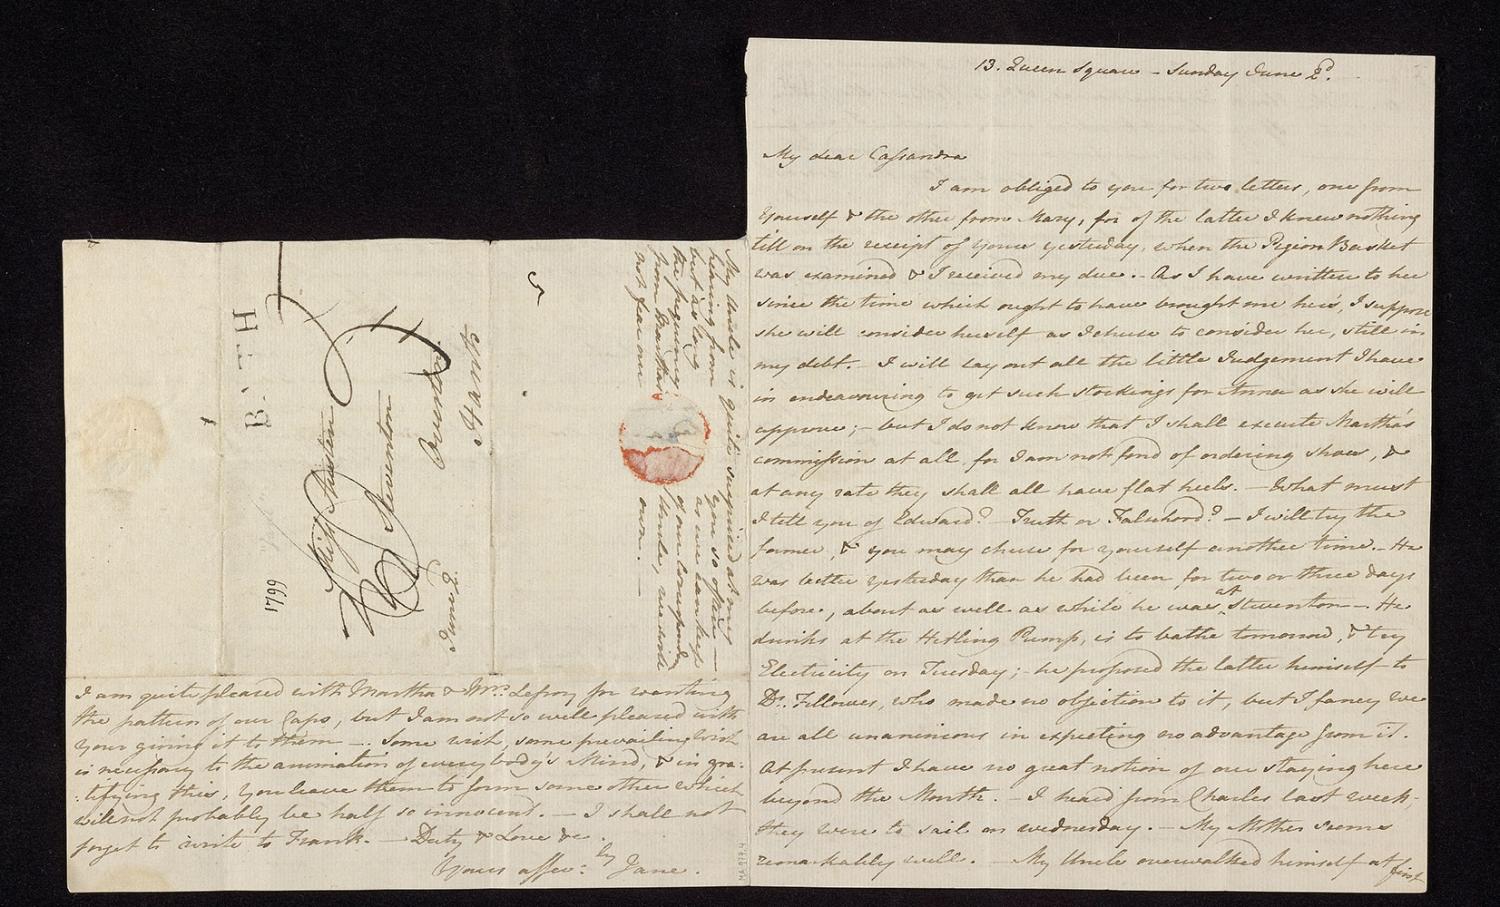 13. Queen Square - Sunday June 2d.
My dear Cassandra
I am obliged to you for two letters, one from
Yourself & the other from Mary, for of the latter I knew nothing
till on the receipt of Yours yesterday, when the Pigeon Basket
was examined & I received my due. - As I have written to her
since the time which ought to have brought me hers, I suppose
she will consider herself as I chuse to consider her, still in
my debt. - I will lay out all the little Judgement I have
in endeavouring to get such stockings for Anna as she will
approve; - but I do not know that I shall execute Martha's
commission at all, for I am not fond of ordering shoes, &
at any rate they shall all have flat heels. - What must
I tell you of Edward? - Truth or Falsehood? - I will try the
former, & you may chuse for yourself another time. - He
was better yesterday than he had been for two or three days
before, about as well as while he was at Steventon - He
drinks at the Hetling Pump, is to bathe tomorrow, & try
Electricity on Tuesday; - he proposed the latter himself to
Dr. Fellowes, who made no objection to it, but I fancy we
are all unanimous in expecting no advantage from it.
At present I have no great notion of our staying here
beyond the Month. - I heard from Charles last week; -
they were to sail on wednesday. - My Mother seems
remarkably well. - My Uncle overwalked himself at first
My Uncle is quite surprised at my
hearing from you so often -
but as long as we can keep
the frequency of our correspondence
from Martha's Uncle, we will
not fear our own. -
Miss Austen
Steventon
Overton
Hants
June 2
BATH
1799
I am quite pleased with Martha & Mrs. Lefroy for wanting
the pattern of our Caps, but I am not so well pleased with
Your giving it to them -. Some wish, some prevailing Wish
is necessary to the animation of everybody's Mind, & in gra:
:tifying this, You leave them to form some other which
will not probably be half so innocent. - I shall not
forget to write to Frank. - Duty & Love &c.
Yours affec:ly Jane.